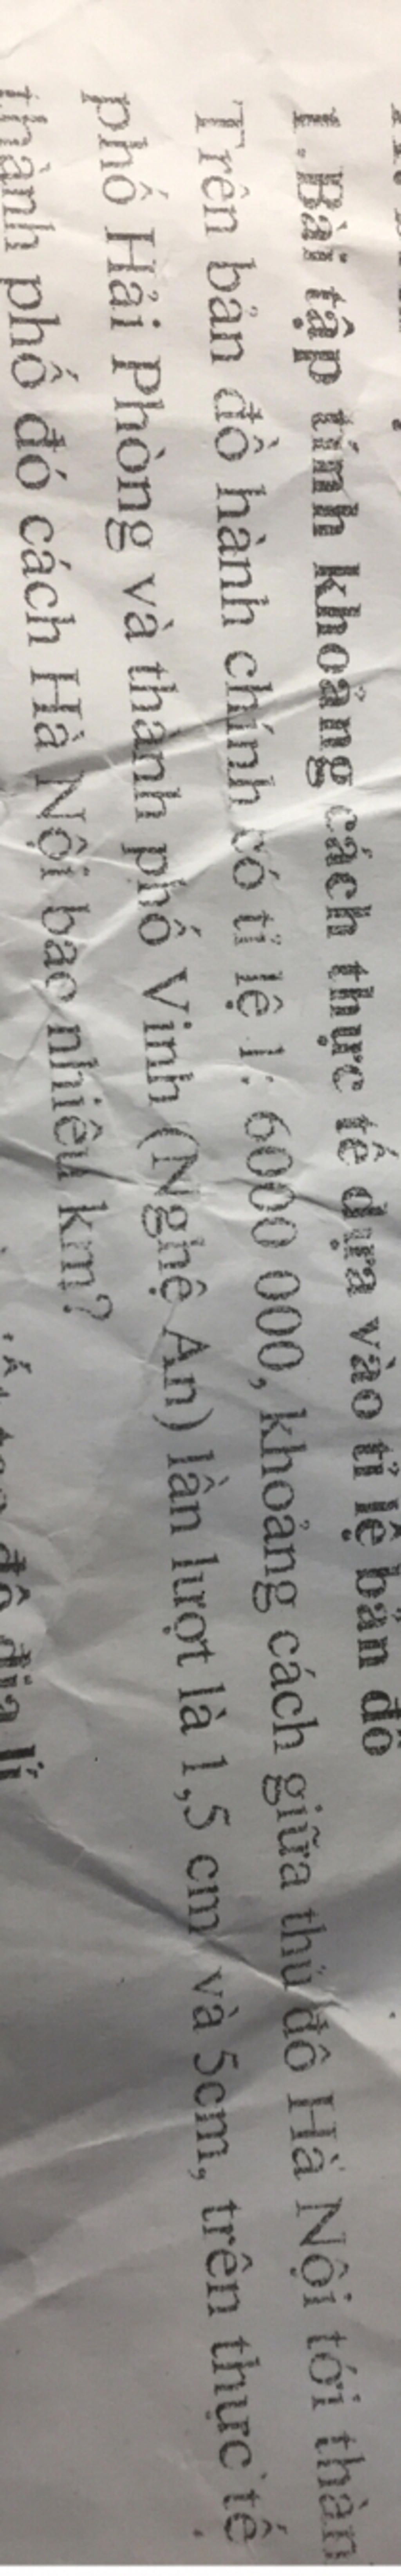 1. Bài tập tính khoảng cách thực tế dựa vào tỉ lệ bản đồ
Trên bản đồ hành chính có tỉ lệ 1: 6000 000, khoảng cách giữa thủ đô Hà Nội tới thàn
phố Hải Phòng và thành phố Vinh (Nghệ An) lần lượt là 1,5 cm và 5cm, trên thực tế
thành phố đó cách Hà Nội bao nhiêu km?
độ địa lí